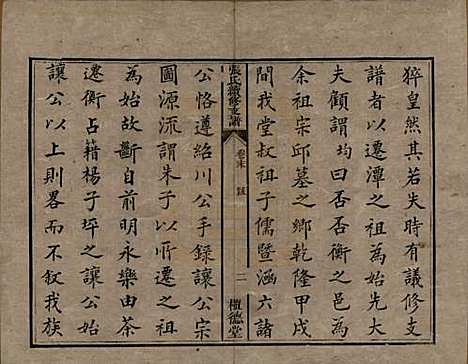 猝皇然其若失時有議修支
譜者以遷潭之祖為始先大
夫顧謂均曰否否衡之邑為
余祖宗邱墓之鄉乾隆甲戌
間我堂叔祖子儒暨涵六諸
張氏續修支譜
卷末
二
植德堂
公恪遵紹川公手錄讓公宗
圖源流謂朱子以所遷之祖
為始故斷自前明永樂由茶
遷衡占籍楊子坪之讓公始
讓公以上則畧而不敘我族